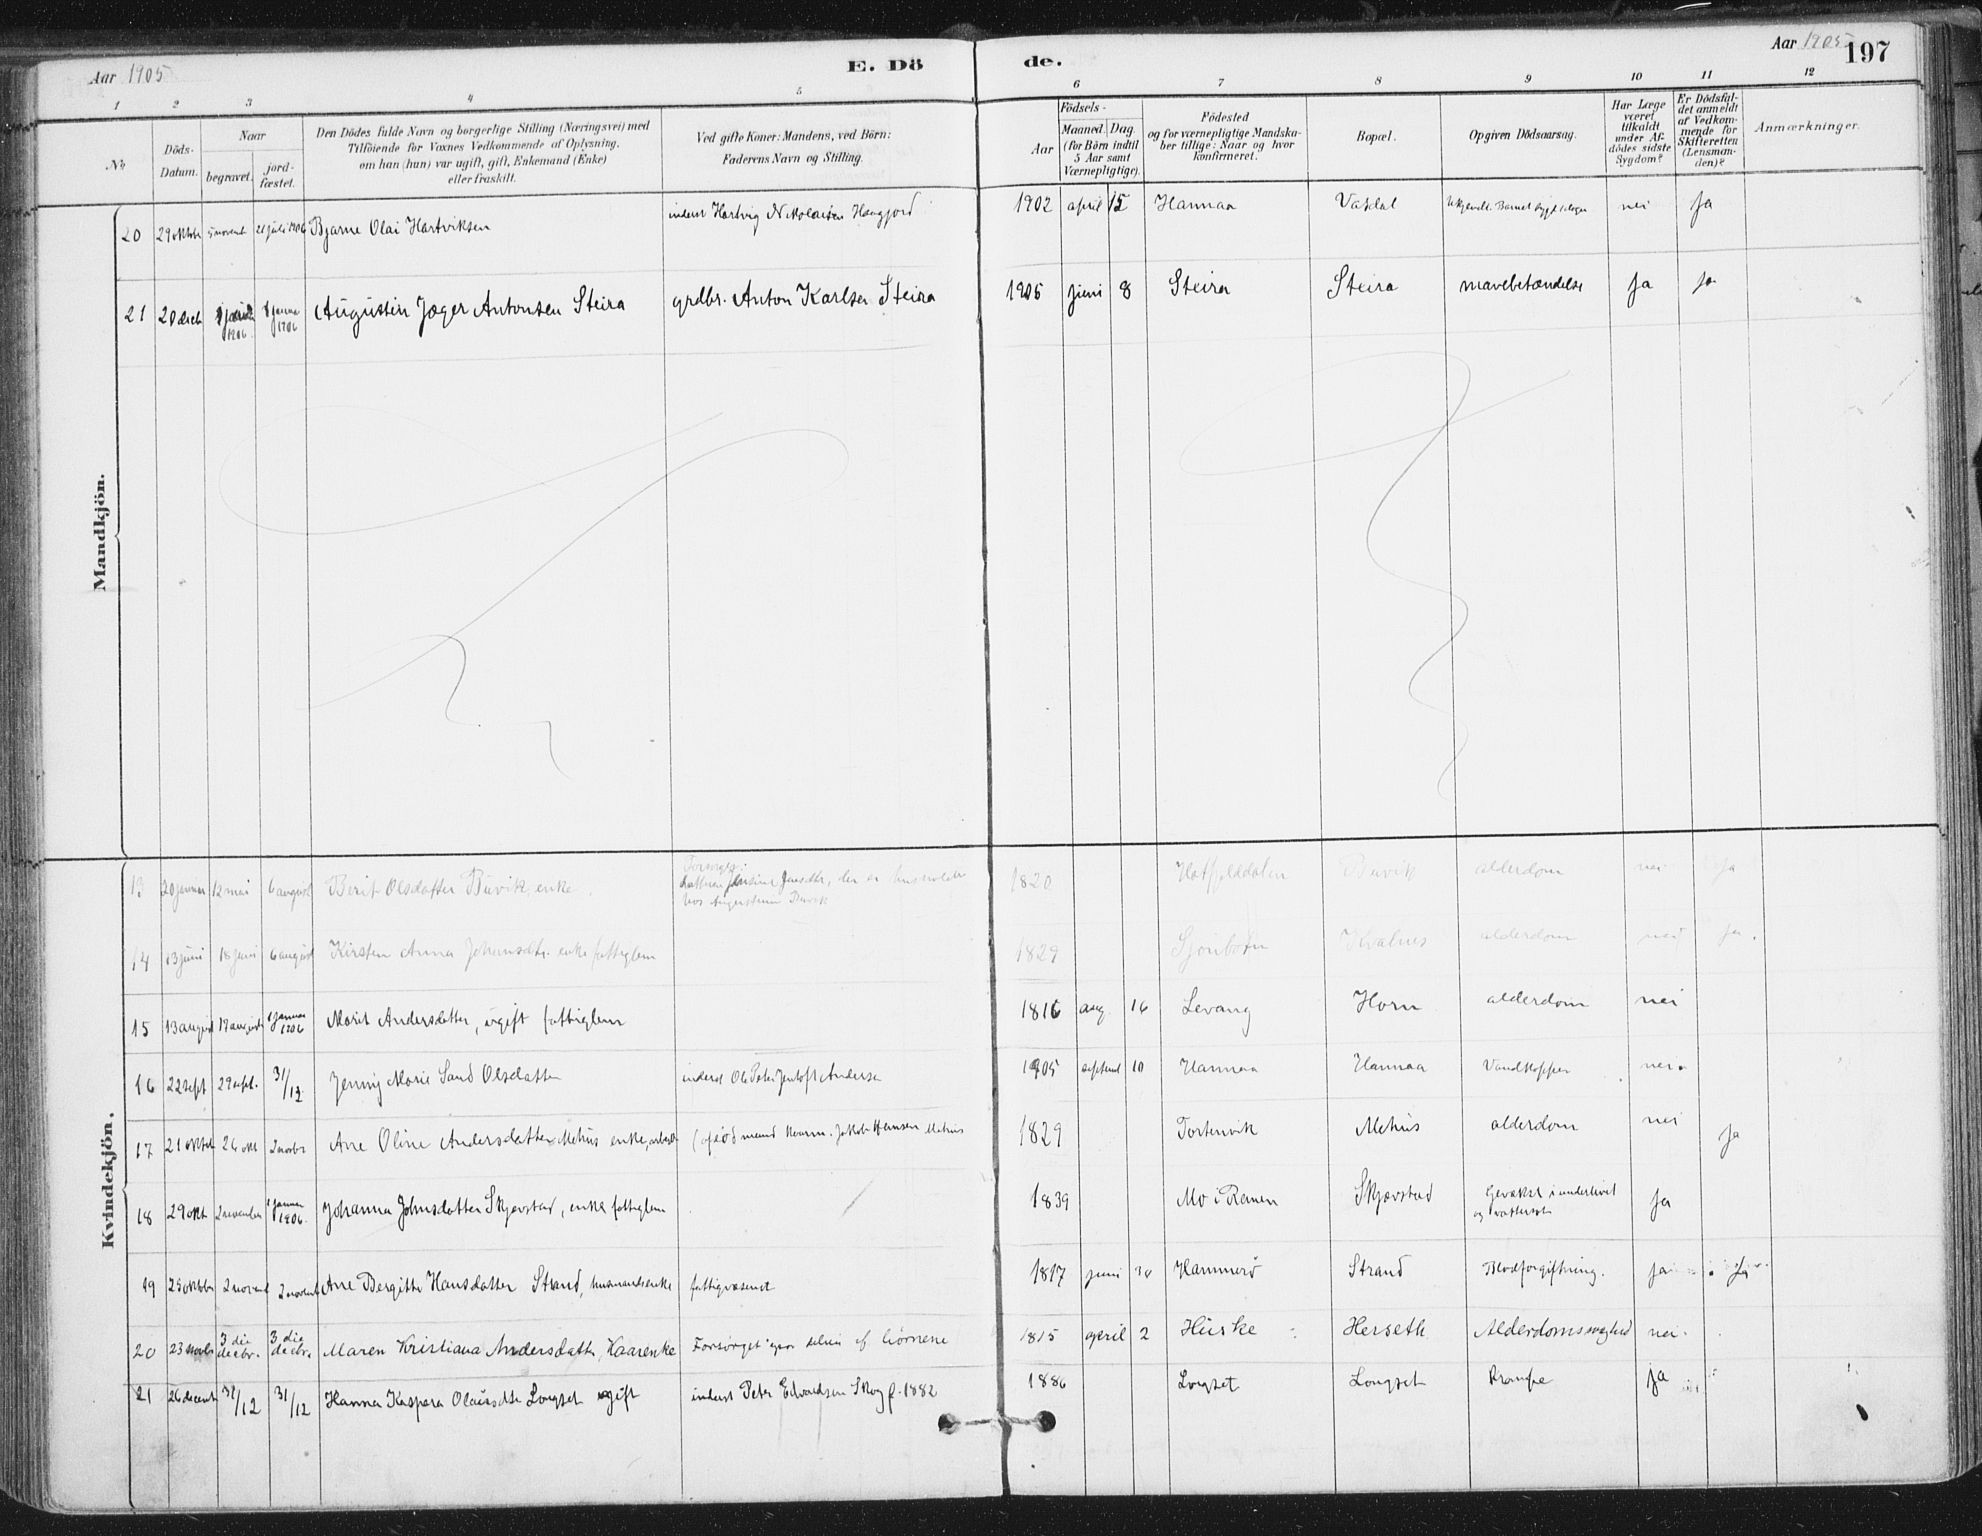 Aar 1905 E. Dö de. Aar 1905 197
1 2 3 4 5 6 7 8 9 10 11 12
No
Döds-Datum.
Naar
begravet.
jordfæstet.
Den Dödes fulde Navn og borgerlige Stilling (Næringsvei) med
Tilföiende for Voxnes Vedkommende af Oplysning,
om han (hun) var ugift, gift, Enkemand (Enke)
eller fraskilt.
Ved gifte Koner: Mandens, ved Börn:
Faderens Navn og Stilling.
Födsels-
Aar
Maaned. Dag.
(for Börn indtil
5 Aar samt
Værnepligtige).
Födested
og for værnepligtige Mandska-
ber tillige: Naar og hvor
konfirmeret.
Bopæl.
Opgiven Dödsaarsag.
Har Læge
været
tilkaldt
under Af-
dödes sidste
Sygdom?
Er Dödsfal-
det anmeldt
af Vedkom-
mende for
Skifteretten
(Lensman-
den)?
Anmærkninger.
Mandkjön.
20 29 oktober novemb 21 juli 1906 Bjarne Olai Hartviksen inderst Hartvig Nikolaisen Haugjord 1902 april 15 Hannaa Vasdal nei ja
21 20 decb 1906 januar 1906 Augustin Jæger Antonsen Steira grdbr. Anton Karlsen Steira 1905 juni 8 Steira Steira mavebetændelse ja ja
Kvindekjön.
13 20 januar 12 mai 6 august Berit Olsdatter Buvik, enke. 1820 Hatfjelddalen Buvik alderdom nei ja
14 13 juni 18 juni 6 august Kirsten Anna Johansdtr. enke fattiglem 1829 Sjonbotn Kvalnes alderdom nei ja.
15 13 august 19 august januar 1906 Marit Andersdatter, ugift fattiglem 1816 aug. 16 Levang Horn alderdom nei
16 22 sept 29 sept. 31/12 Jenny Marie Sand Olsdatter inderst Ole Peter Jentoft Andersen 1905 septemb 10 Hannaa Hannaa Vandkopper nei.
17 21 oktob 26 okt 2 novbr Ane Oline Andersdatter Mehus enke, Jakob Hansen Mehus 1829 Tortenvik Mehus alderdom nei ja
18 29 okt 2 november 1 januar 1906. Johanna Johnsdatter Skjævstad, enke fattiglem 1839 Mo i Ranen Skjævstad Gevækst i underlivet ja
og vattersot
19 25 oktober 2 novemb 2 novemb Ane Bergitte Hansdatter Strand, husmandsenke fattigvæsenet 1817 juni 30 Hammerö Strand Blodforgiftning. ja ja
20 23 novbr 3die decbr. 3die decbr. Maren Kristiana Andersdatter, Kaarenke Forsörget af börnene 1815 april 2 Huske Herseth Alderdomssvaghed nei.
21 26 decemb 31/12 31/12 Hanna Kaspara Olausdtr Longset ugift inderst Peter Edvardsen Skog f. 1882 1886 Longset Longset Krampe ja